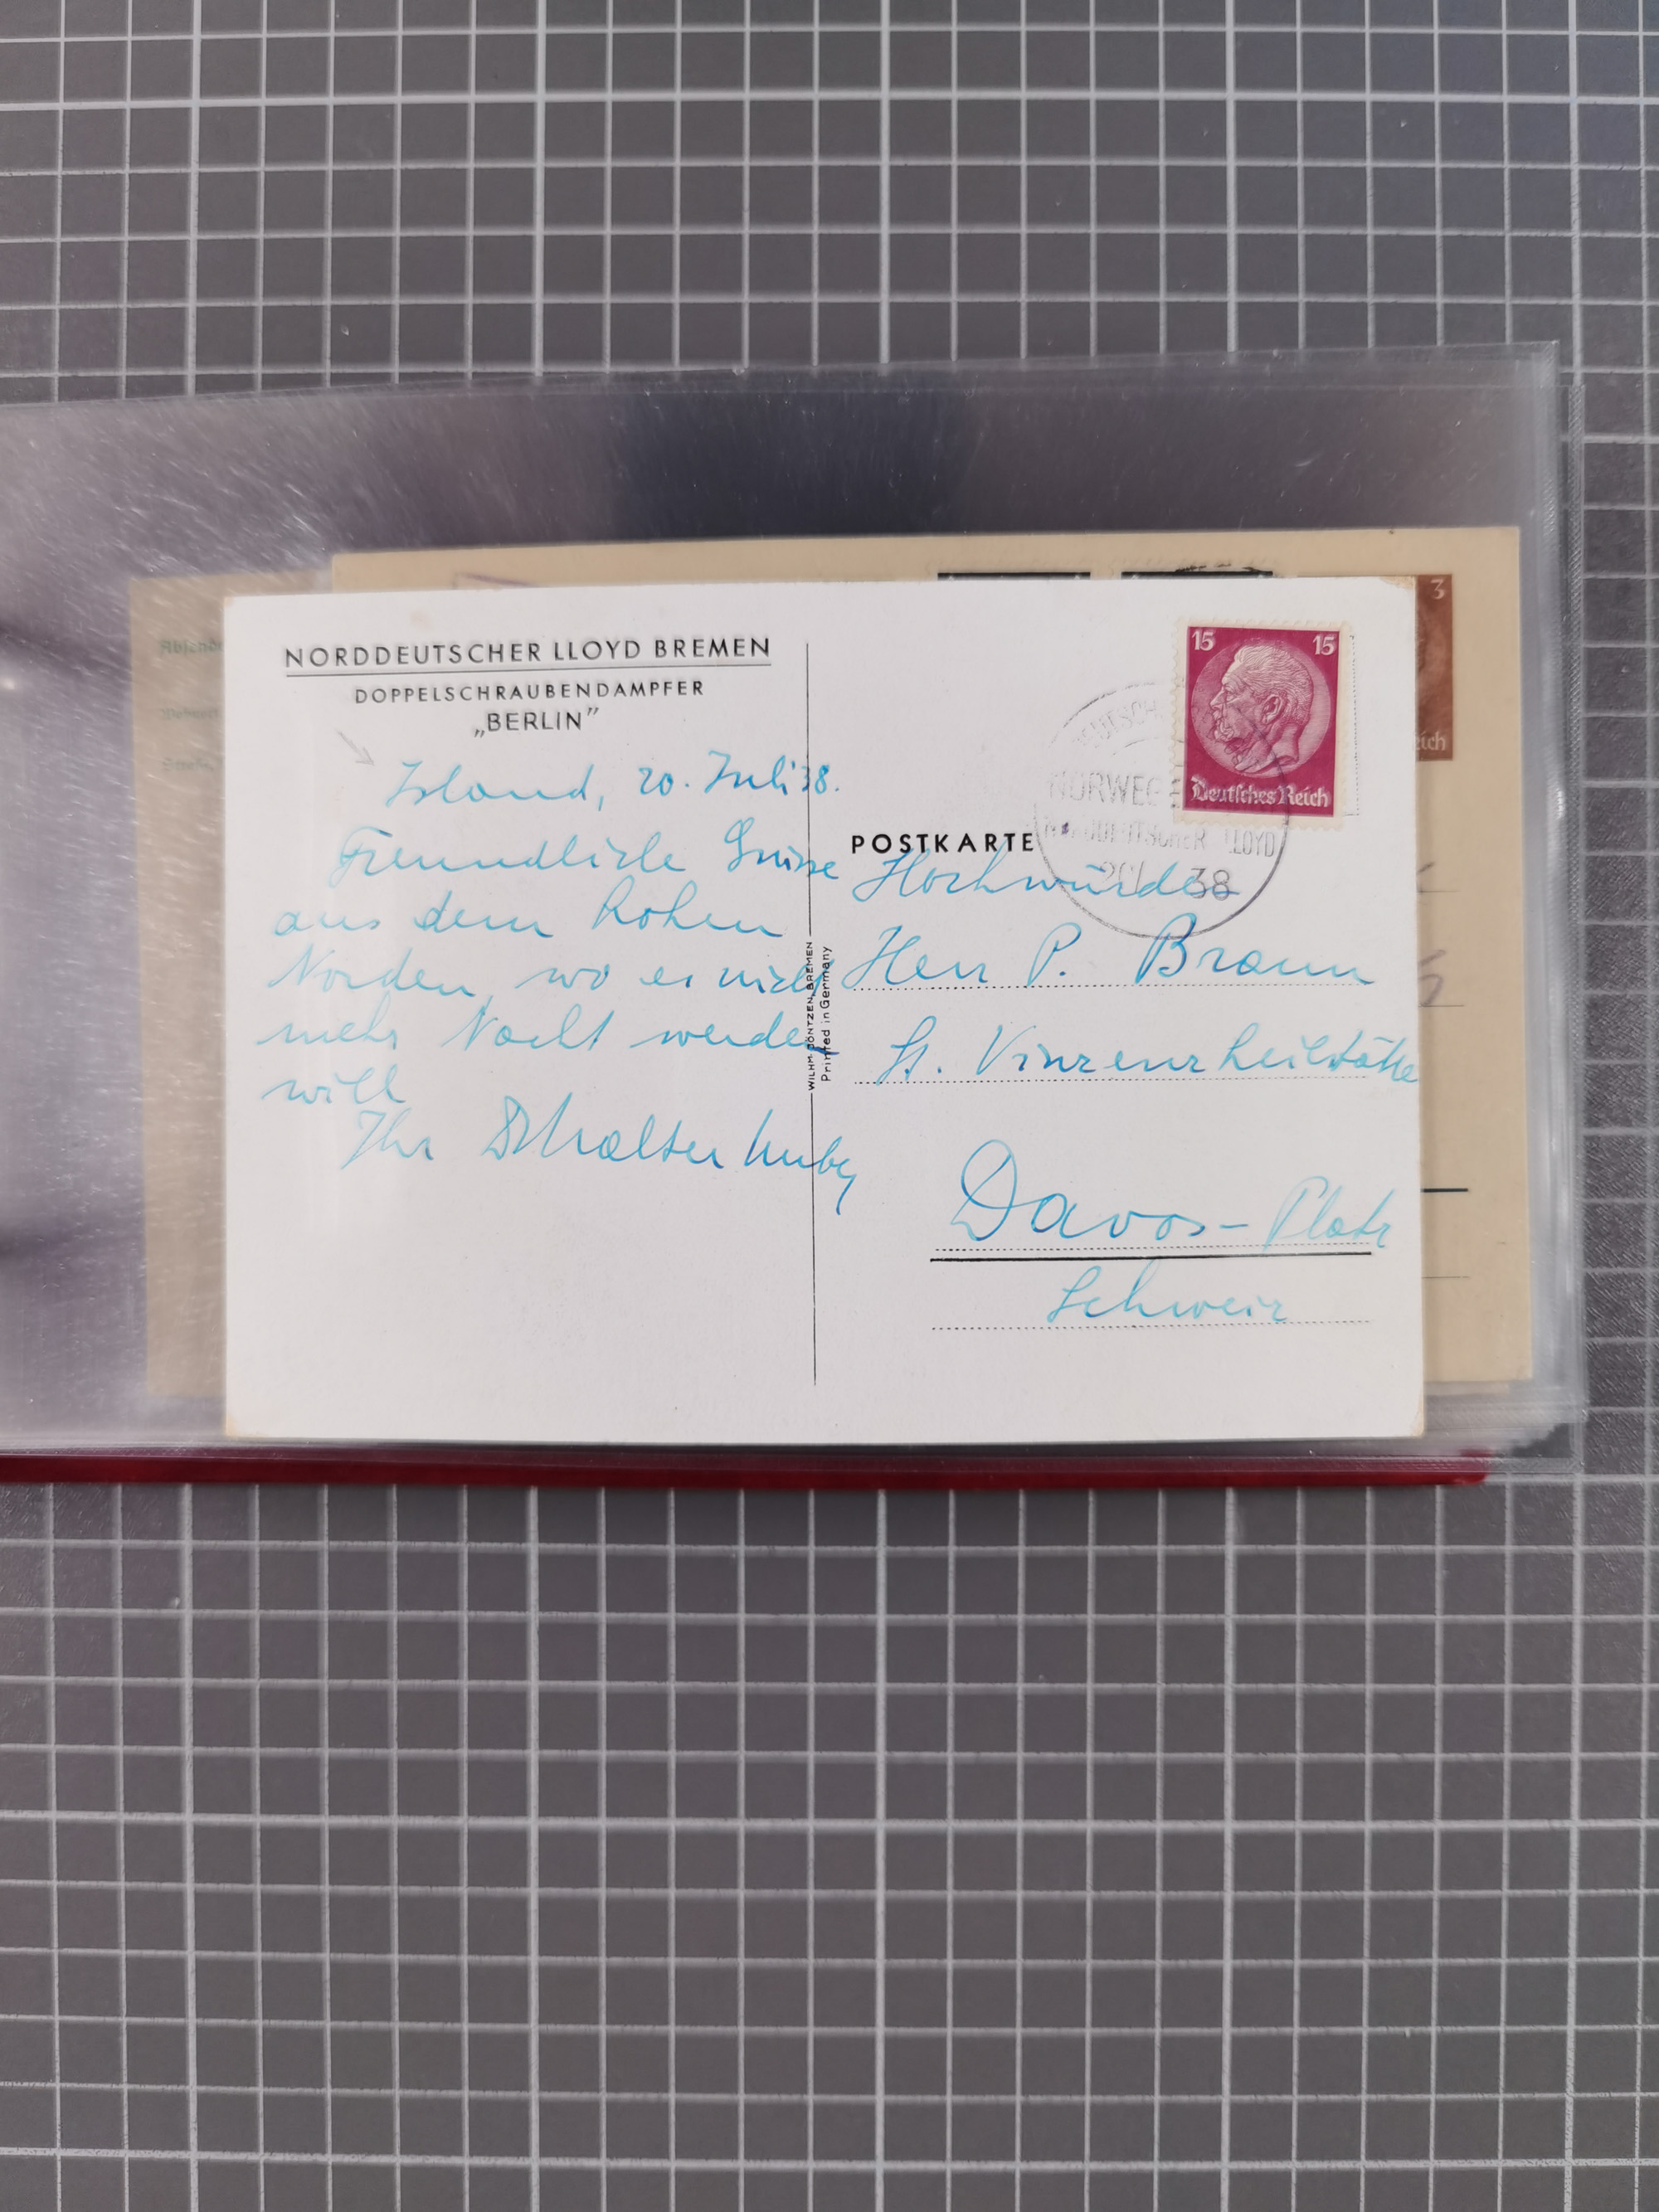 NORDDEUTSCHER LLOYD BREMEN
DOPPELSCHRAUBENDAMPFER
„BERLIN”
Island, 20. Juli 38.
Freundliche Grüsse
aus dem hohen
Norden, wo es nicht
mehr Nacht werden
will
Ihr
WILHM. JÖNTZEN, BREMEN
Printed in Germany
15 15
Deutsches Reich
NORWEGE
NORDDEUTSCHER LLOYD
38
POSTKARTE
Hochwürden
Herr P. Braun
St. Vinzenzheilstätte
Davos-Platz
Schweiz
3